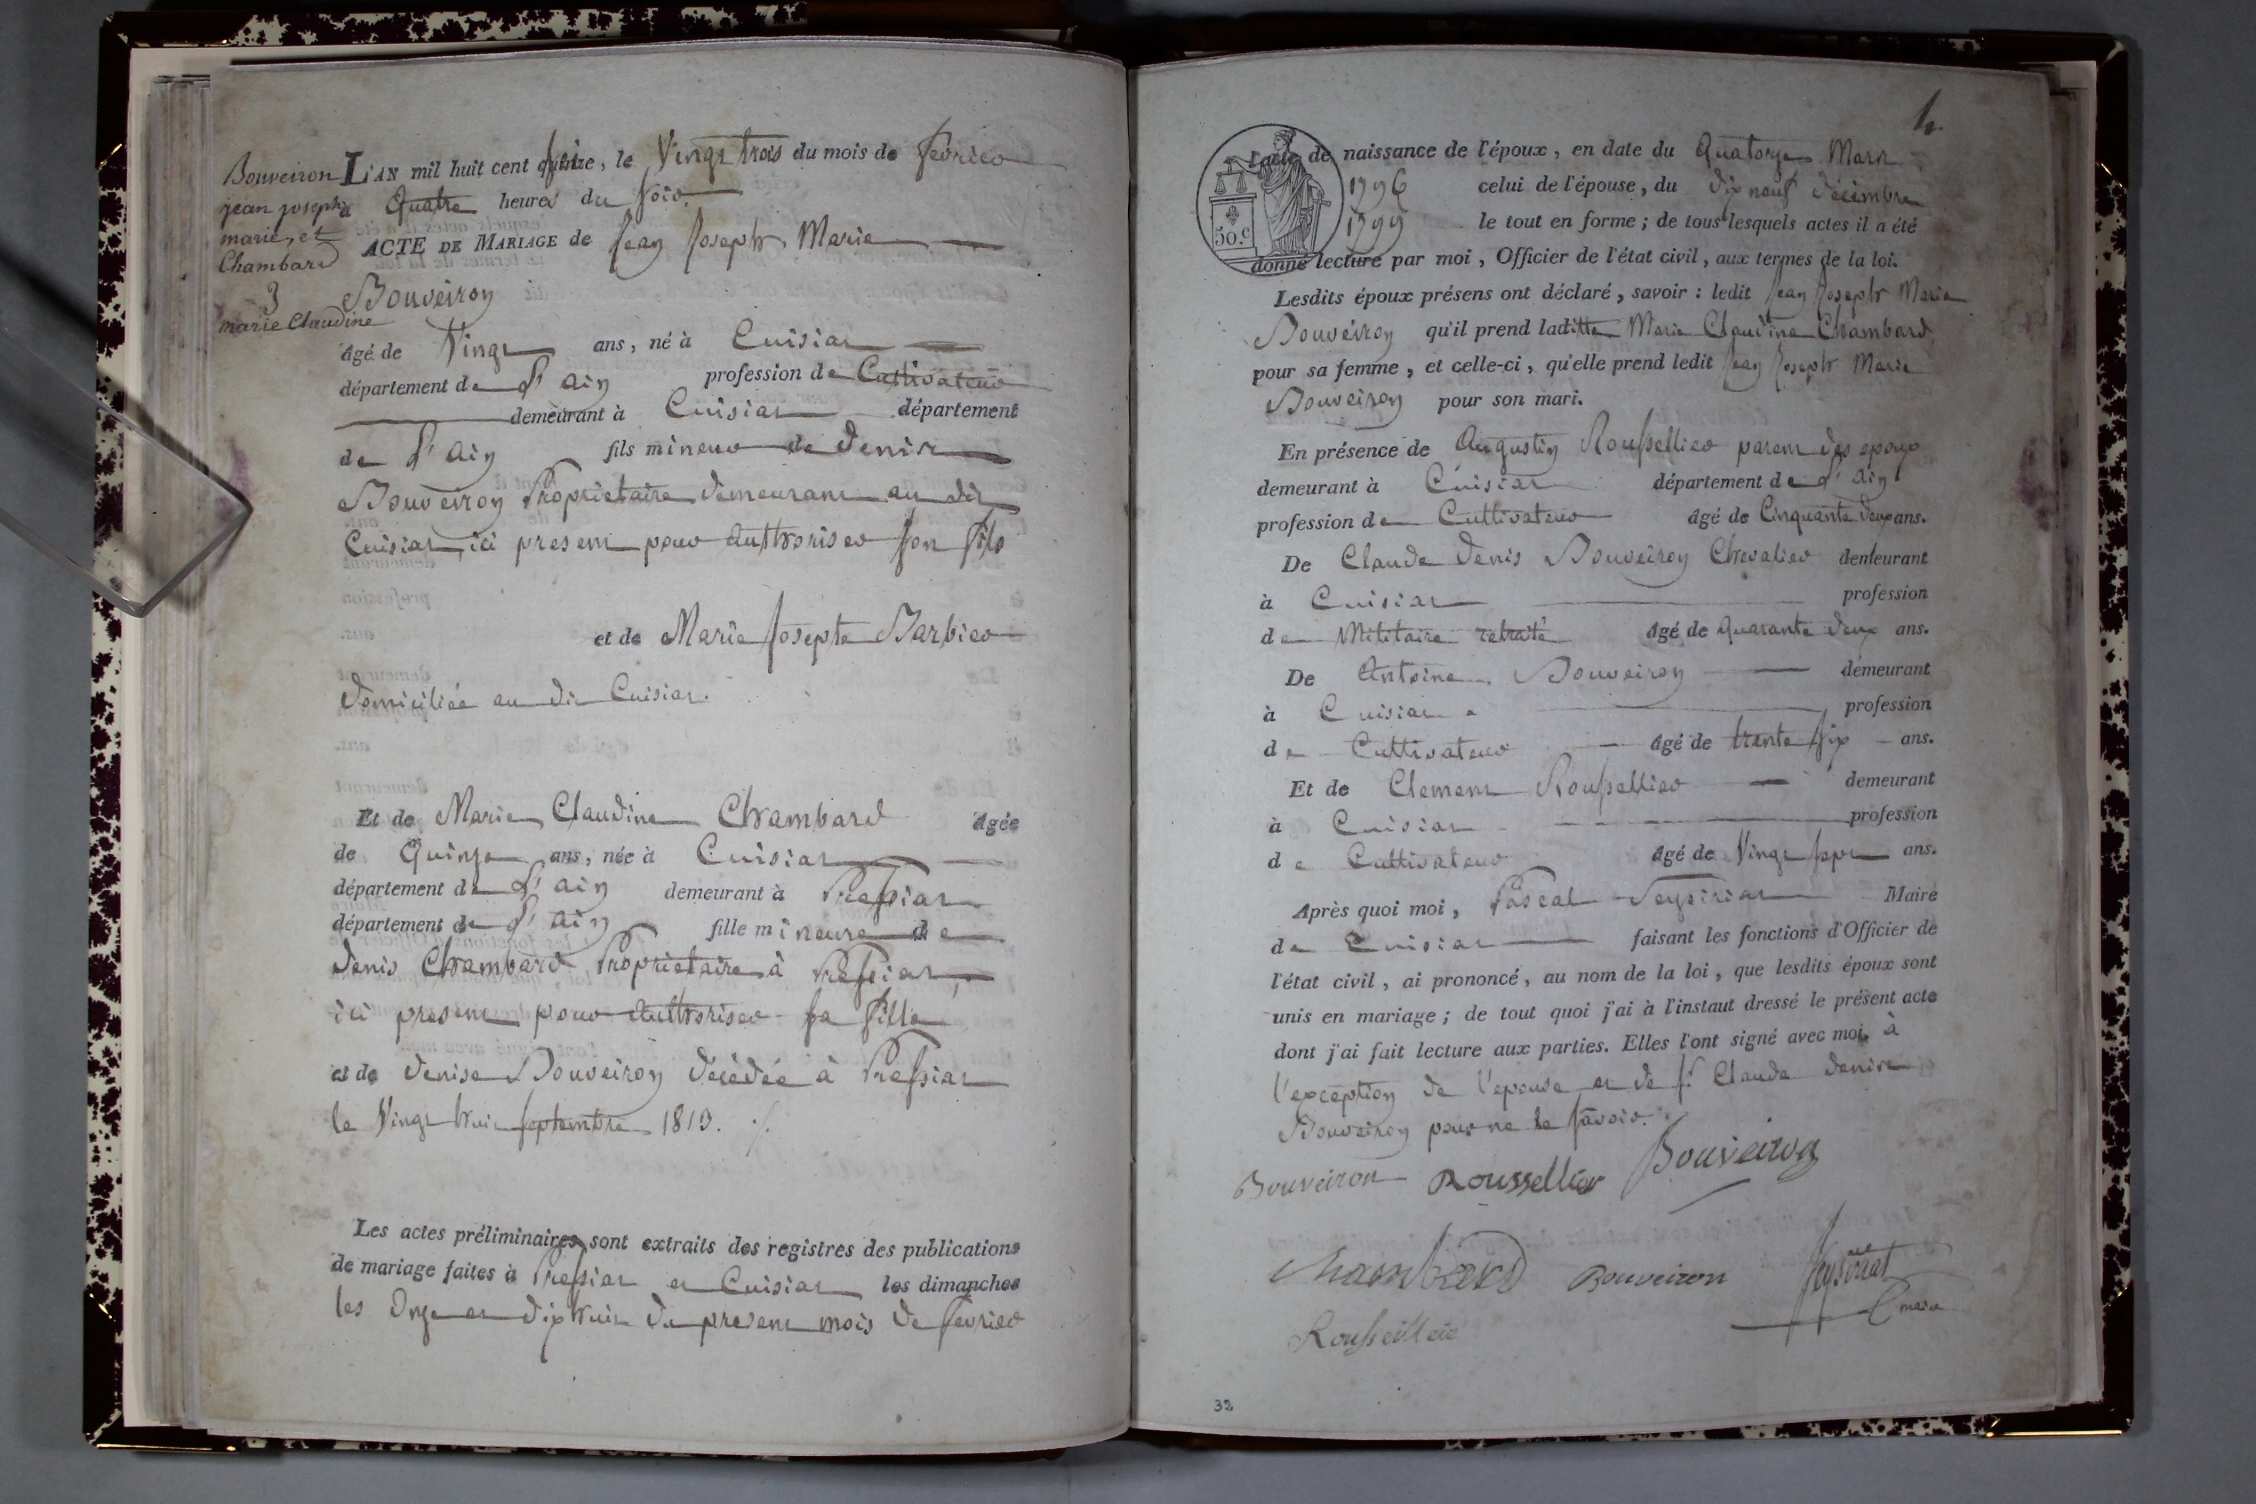 Bouveiron
jean joseph
marie, et
Chambard
3
marie Claudine
L'AN mil huit cent seize, le Vingt trois du mois de fevrier
à Quatre heures du soir.
ACTE DE MARIAGE de Jean Joseph Marie
Bouveiron
âgé de Vingt ans, né à Cuisiat
département de L'ain profession de Cultivateur
demeurant à Cuisiat département
de L'ain fils mineur de denis
Bouveiron Proprietaire demeurant au dit
Cuisiat, ici present pour authoriser son fils
et de Marie Josepte Barbier
domiciliée au dit Cuisiat.
Et de Marie Claudine Chambard âgée
de Quinze ans, née à Cuisiat
département de L'ain demeurant à Pressiat
département de L'ain fille mineure de
denis Chambard Proprietaire à Pressiat,
ici present pour authoriser sa fille
et de denise Bouveiron décédée à Pressiat
le Vingt huit septembre 1813. ./.
Les actes préliminaires sont extraits des registres des publications
de mariage faites à Pressiat et Cuisiat les dimanches
les Onze et dix huit du present mois de fevrier
50.c
l'acte de naissance de l'époux, en date du Quatorze Mars
1796 celui de l'épouse, du dix neuf décembre
1799 le tout en forme; de tous lesquels actes il a été
donné lecture par moi, Officier de l'état civil, aux termes de la loi.
Lesdits époux présens ont déclaré, savoir: ledit Jean Joseph Marie
Bouveiron qu'il prend laditte Marie Claudine Chambard
pour sa femme, et celle-ci, qu'elle prend ledit Jean Joseph Marie
Bouveiron pour son mari.
En présence de Augustin Roussellier parent des epoux
demeurant à Cuisiat département de L'ain
profession de Cultivateur âgé de Cinquante deux ans.
De Claude denis Bouveiron Chevalier demeurant
à Cuisiat profession
de Militaire retraité âgé de quarante deux ans.
De Antoine Bouveiron demeurant
à Cuisiat profession
de Cultivateur âgé de trente six ans.
Et de Clement Roussellier demeurant
à Cuisiat profession
de Cultivateur âgé de Vingt sept ans.
Après quoi moi, Pascal Veysiriat Maire
de Cuisiat faisant les fonctions d'Officier de
l'état civil, ai prononcé, au nom de la loi, que lesdits époux sont
unis en mariage; de tout quoi j'ai à l'instant dressé le présent acte
dont j'ai fait lecture aux parties. Elles l'ont signé avec moi, à
l'exception de l'epouse et de sr Claude denis
Bouveiron pour ne le savoir.
Bouveiron Roussellier Bouveiron
Chambard Bouveiron
maire
32